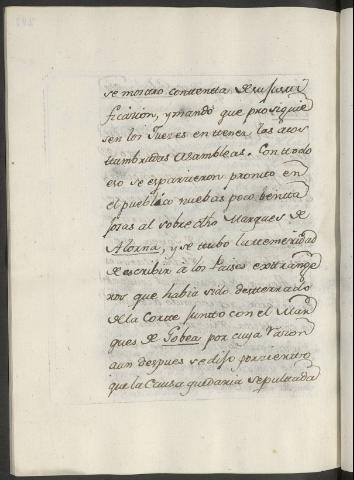 se mostro contenta de su Justi
ficacion, y mandó que prosiguie
sen los Jueves en tener las acos
tumbradas Asambleas. Con todo
eso se esparcieron pronto en
el pueblico nuebas poco benta
josas al sobre dho Marques de
Alorna, y se tubo la temeridad
de escribir a los Paises extrange
ros que habia sido desterrado
de la Corte junto con el Mar
ques de Gobea por cuya rason
aun despues se dijo por cierto
que la Causa quedaria sepultada